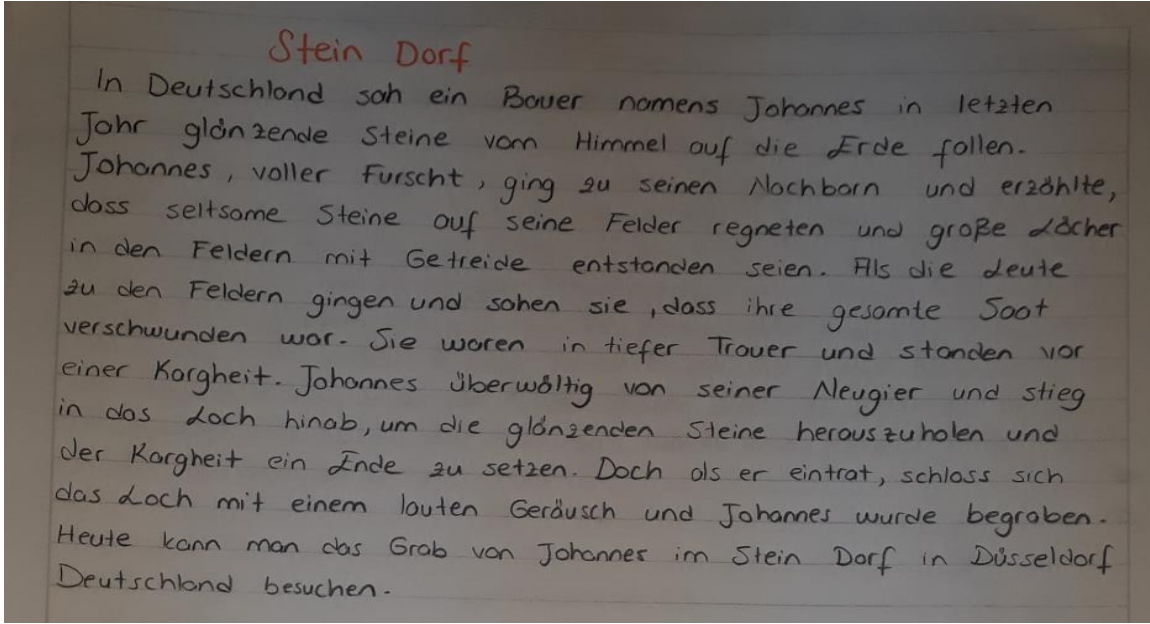 Stein Dorf
In Deutschland sah ein Bauer namens Johannes in letzten
Jahr glänzende Steine vom Himmel auf die Erde fallen.
Johannes, voller Furscht, ging zu seinen Nachbarn und erzählte,
dass seltsame Steine auf seine Felder regneten und große Löcher
in den Feldern mit Getreide entstanden seien. Als die Leute
zu den Feldern gingen und sahen sie, dass ihre gesamte Saat
verschwunden war. Sie waren in tiefer Trauer und standen vor
einer Kargheit. Johannes überwältig von seiner Neugier und stieg
in das Loch hinab, um die glänzenden Steine herauszuholen und
der Kargheit ein Ende zu setzen. Doch als er eintrat, schloss sich
das Loch mit einem lauten Geräusch und Johannes wurde begraben.
Heute kann man das Grab von Johannes im Stein Dorf in Düsseldorf
Deutschland besuchen.